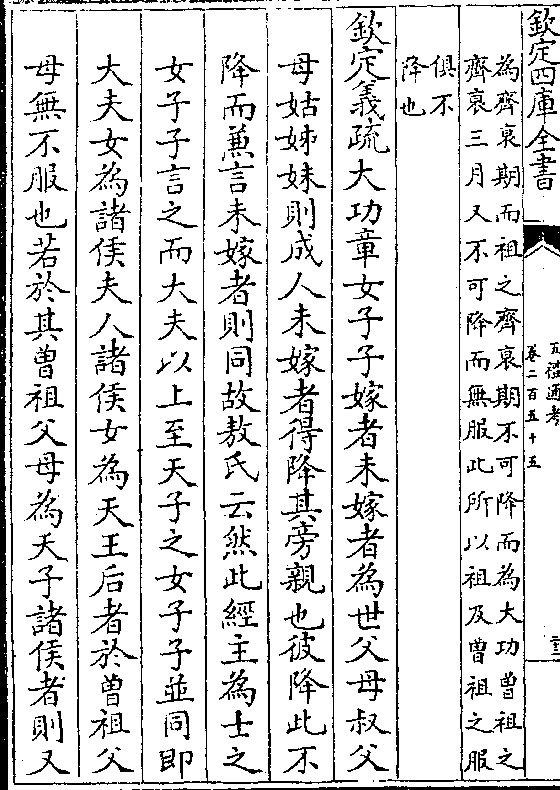 欽定四庫全書
五禮通考
卷二百五十五
為齊衰期而祖之齊衰期不可降而為大功曾祖之
齊衰三月又不可降而無服此所以祖及曾祖之服
俱不
降也
欽定義疏大功章女子子嫁者未嫁者為世父母叔父
母姑姊妹則成人未嫁者得降其旁親也彼降此不
降而兼言未嫁者則同故敖氏云然此經主為士之
女子子言之而大夫以上至天子之女子子並同即
大夫女為諸侯夫人諸侯女為天王后者於曾祖父
母無不服也若於其曾祖父母為天子諸侯者則又